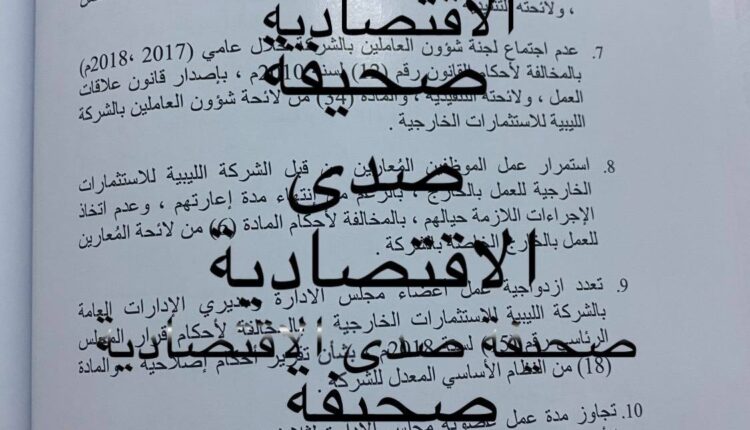 ، ولائحته
الاقتصادية
7. عدم اجتماع لجنة شؤون العاملين بالشركة خلال عامي (2017 ،2018م)
بالمخالفة لأحكام القانون رقم (12) لسنة 2010م ، بإصدار قانون علاقات
صحيفة
العمل ، ولائحته التنفيذية ، والمادة (34) من لائحة شؤون العاملين بالشركة
الليبية للاستثمارات الخارجية .
8. استمرار عمل الموظفين المُعارين من قبل الشركة الليبية للاستثمارات
صدى
الخارجية للعمل بالخارج ، بالرغم من انتهاء مدة إعارتهم ، وعدم اتخاذ
الإجراءات اللازمة حيالهم ، بالمخالفة لأحكام المادة (6) من لائحة المُعارين
للعمل بالخارج الخاصة بالشركة .
الاقتصادية
9. تعدد ازدواجية عمل أعضاء مجلس الادارة ومديري الإدارات العامة
بالشركة الليبية للاستثمارات الخارجية ، بالمخالفة لأحكام قرار المجلس
صحيفة صدى الإقتصادية
الرئاسي رقم لسنة 2018م ، بشأن تقرير أحكام إصلاحية ، والمادة
(18) من النظام الأساسي المعدل للشركة .
صحيفة
10. تجاوز مدة عمل عضوية مجلس الادارة